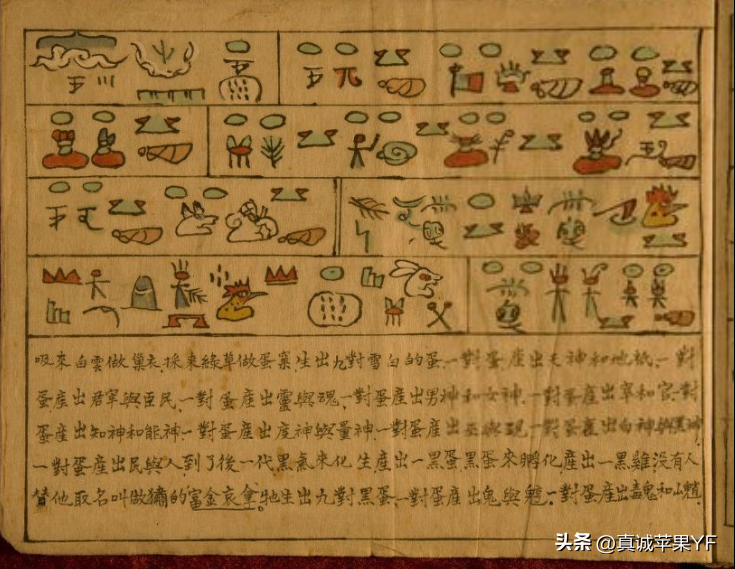 吸來白雲做巢衣.採來綠草做蛋窩生出九對雪白的蛋.一對蛋產出天神和地祇.一對
蛋產出君宰與臣民、一對蛋產出靈與魂、一對蛋產出男神和女神.一對蛋產出宰和官.一對
蛋產出知神和能神.一對蛋產出度神與量神.一對蛋產出巫與覡.一對蛋產出白神與黑神.
一對蛋產出民與人到了後一代黑氣來化生產出一黑蛋黑蛋來孵化產出一黑雞沒有人
替他取名叫做的富金哀拿.牠生出九對黑蛋.一對蛋產出鬼與魈.一對蛋產出毒鬼和山魈.
头条 @真诚苹果YF